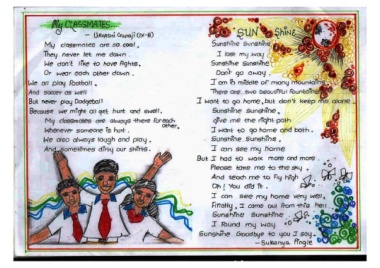 My CLASSMATES
- Urvashi Gwaji (IX-B)
My classmates are so cool,
They never let me down.
We don't like to have fights,
Or wear each other down.
We all play football,
And soccer as well
But never play Dodgeball
Because we might all get hurt and swell.
My classmates are always there for each other,
Whenever someone is hurt.
We also always laugh and play,
And sometimes dirty our shirts.
SUN Shine
Sunshine Sunshine
I lose my way
Sunshine Sunshine
Don't go away.
I am in middle of many mountains
There are two beautiful fountains
I want to go home, but don't keep me alone
Sunshine Sunshine,
give me the right path
I want to go home and bath.
Sunshine Sunshine
I can see my home
But I had to walk more and more.
Please take me to the sky
And teach me to fly high
Oh! You did it.
I can see my home very well,
Finally, I came out from this hell
Sunshine Sunshine
I found my way
Sunshine Goodbye to you I say.
- Sukanya Pingle